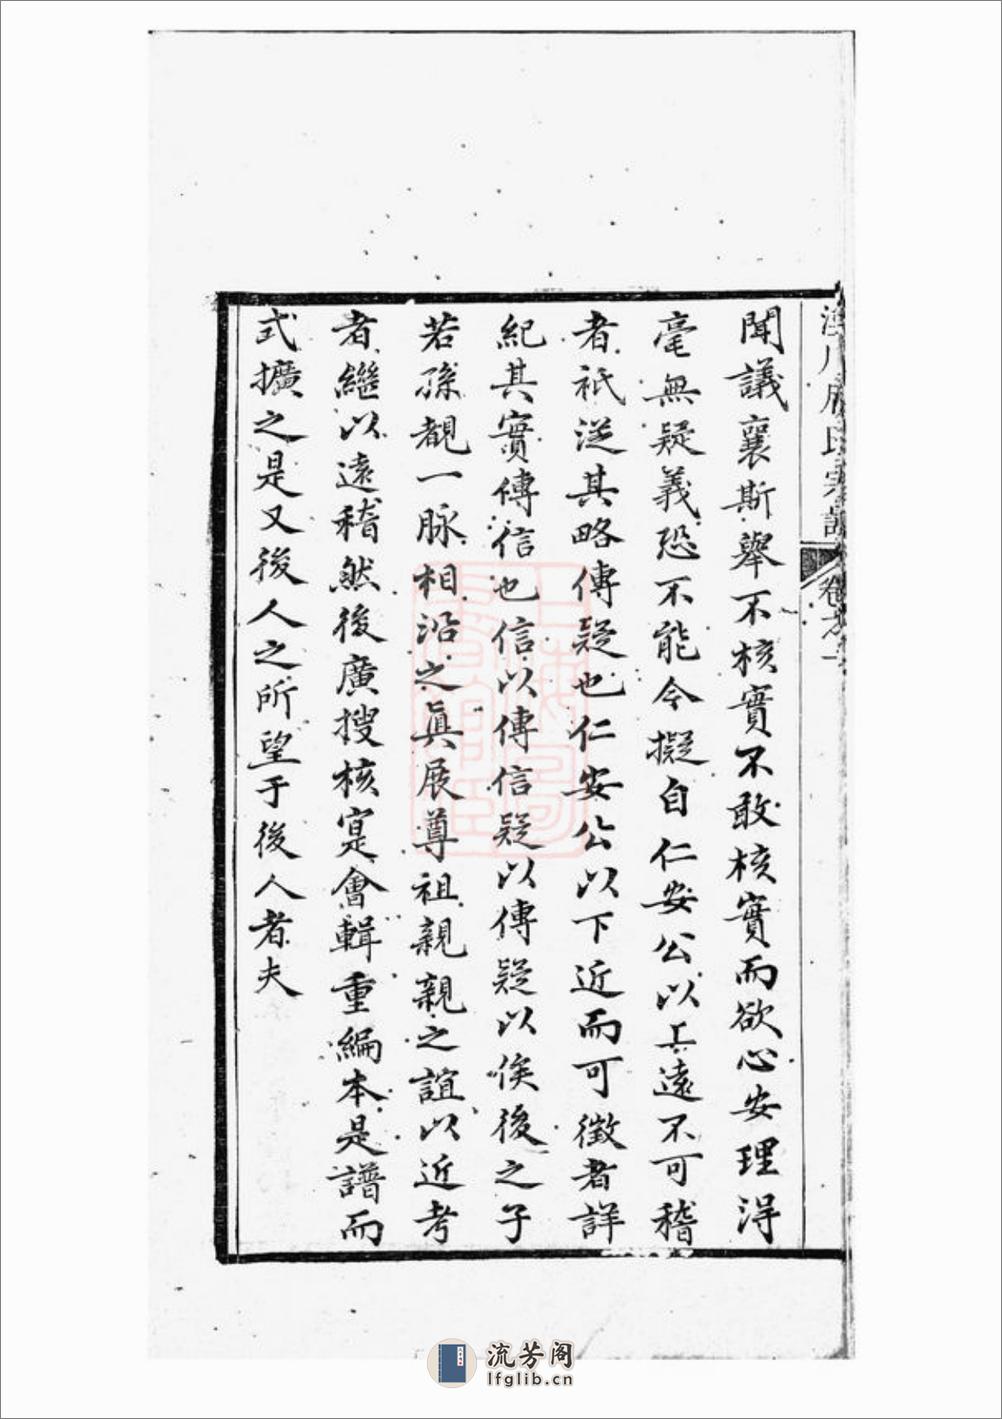 聞議襄斯舉不核實不敢核實而欲心安理淂
毫無疑義恐不能今擬自仁安公以上遠不可稽
者祇從其略傳疑也仁安公以下近而可徵者詳
紀其實傳信也信以傳信疑以傳疑以俟後之子
若孫覩一脉相沿之真展尊祖親親之誼以近考
者繼以遠稽然後廣搜核寔會輯重編本是譜而
式擴之是又後人之所望于後人者夫
流芳阁
lfglib.cn